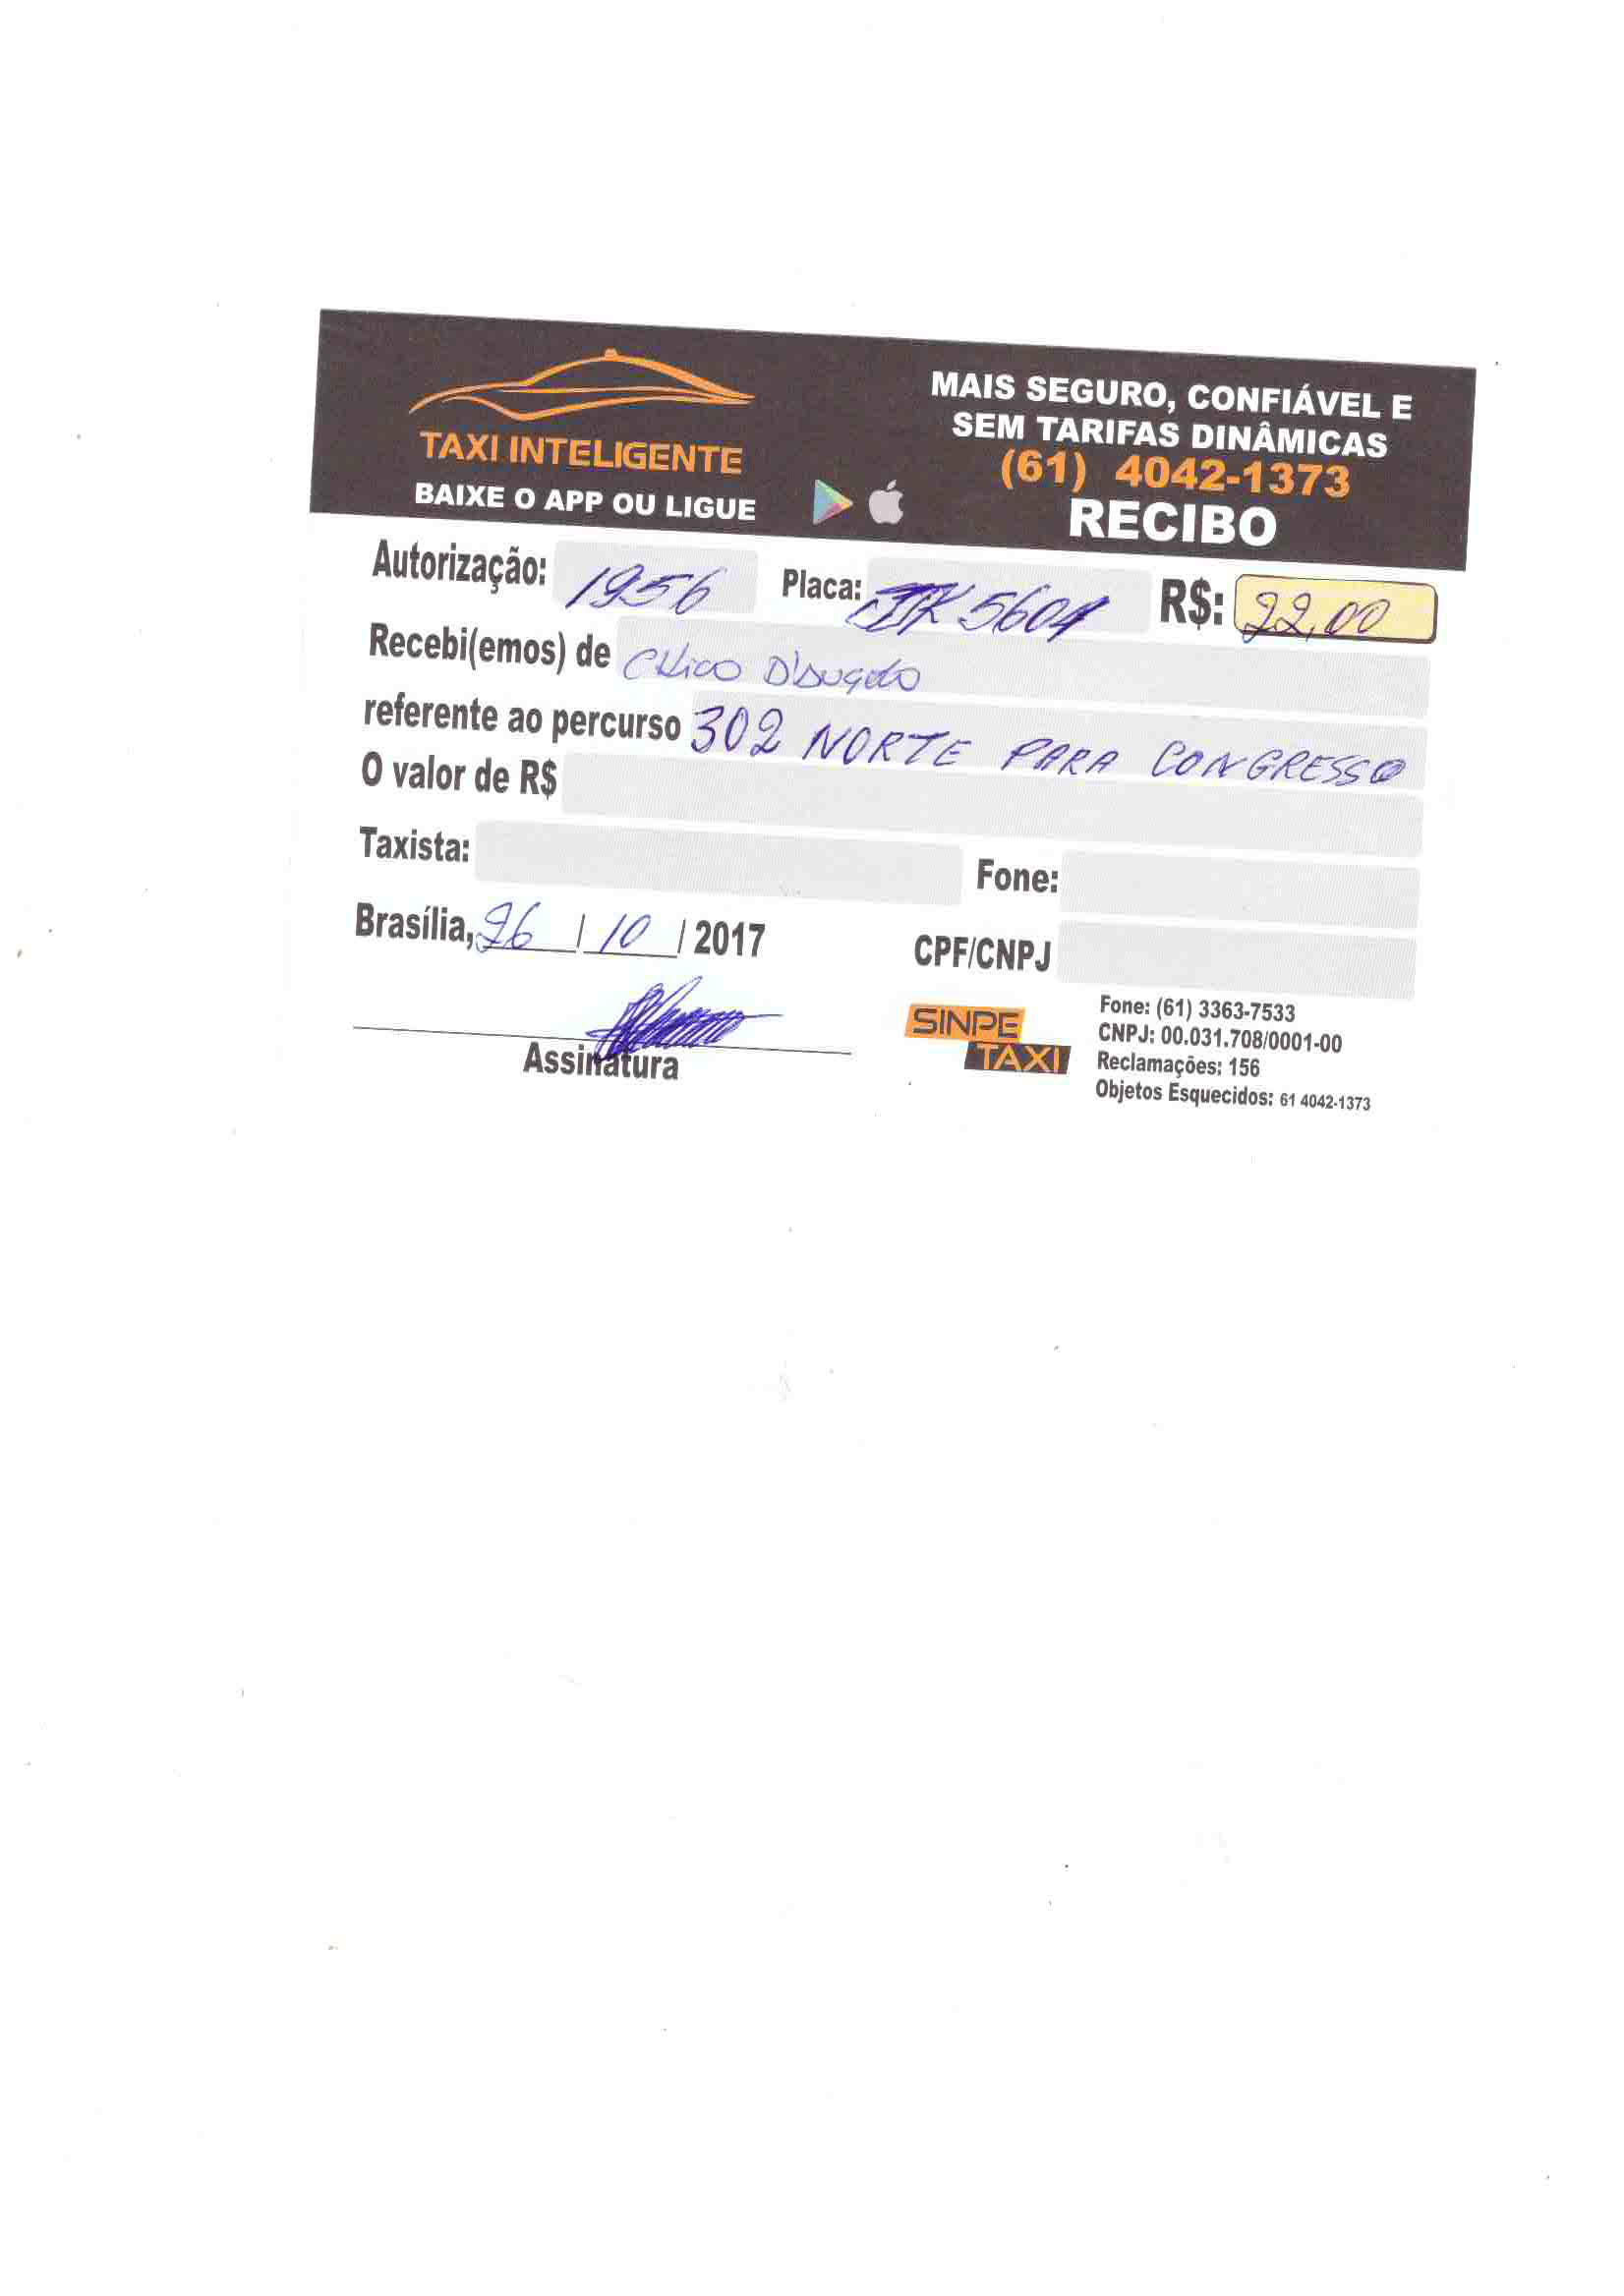 TAXI INTELIGENTE
BAIXE O APP OU LIGUE
MAIS SEGURO, CONFIÁVEL E
SEM TARIFAS DINÂMICAS
(61) 4042-1373
RECIBO
Autorização: 1956 Placa: JJK 5601 R$: 22,00
Recebi(emos) de Chico D'Angelo
referente ao percurso 302 NORTE PARA CONGRESSO
O valor de R$
Taxista: Fone:
Brasília, 26 / 10 / 2017 CPF/CNPJ
Assinatura
SINPE
TAXI
Fone: (61) 3363-7533
CNPJ: 00.031.708/0001-00
Reclamações: 156
Objetos Esquecidos: 61 4042-1373